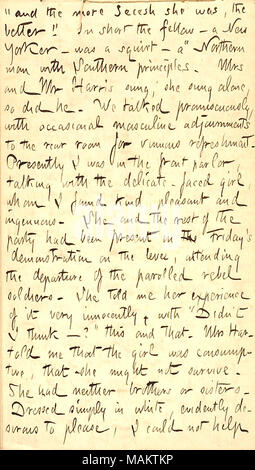 "and the more Secesh she was, the
better!" In short the fellow - a New
Yorker - was a squirt - a "Northern
man with Southern principles. Mrs
and Mr Harris sung, she sung alone,
so did he. We talked promiscuously,
with occasional masculine adjournments
to the rear room for vinous refreshment.
Presently I was in the front parlor
talking with the delicate-faced girl
whom I found kind, pleasant and
ingenuous. She and the rest of the
party had been present in Friday's
demonstration on the levee, attending
the departure of the parolled rebel
soldiers. She told me her experience
of it very innocently, with "Didn't
I think -?" this and that. Mrs Har-
told me that the girl was consump-
tive, that she might not survive.
She had neither brothers or sisters.
Dressed simply in white, evidently de-
sirous to please, I could not help
alamy
alamy
Image ID: MAKTKP
www.alamy.com